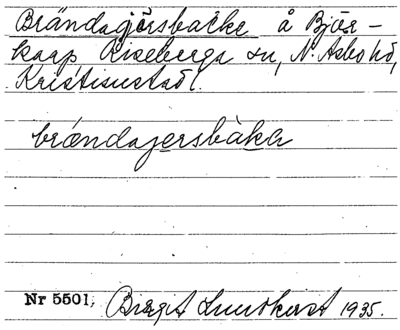 Brändagärsbacke å Bjär-
kaap Riseberga sn, N. Åsbo hd,
Kristianstad l.
brændagersbàka
Nr 5501, Birgit Lundkvist 1935.